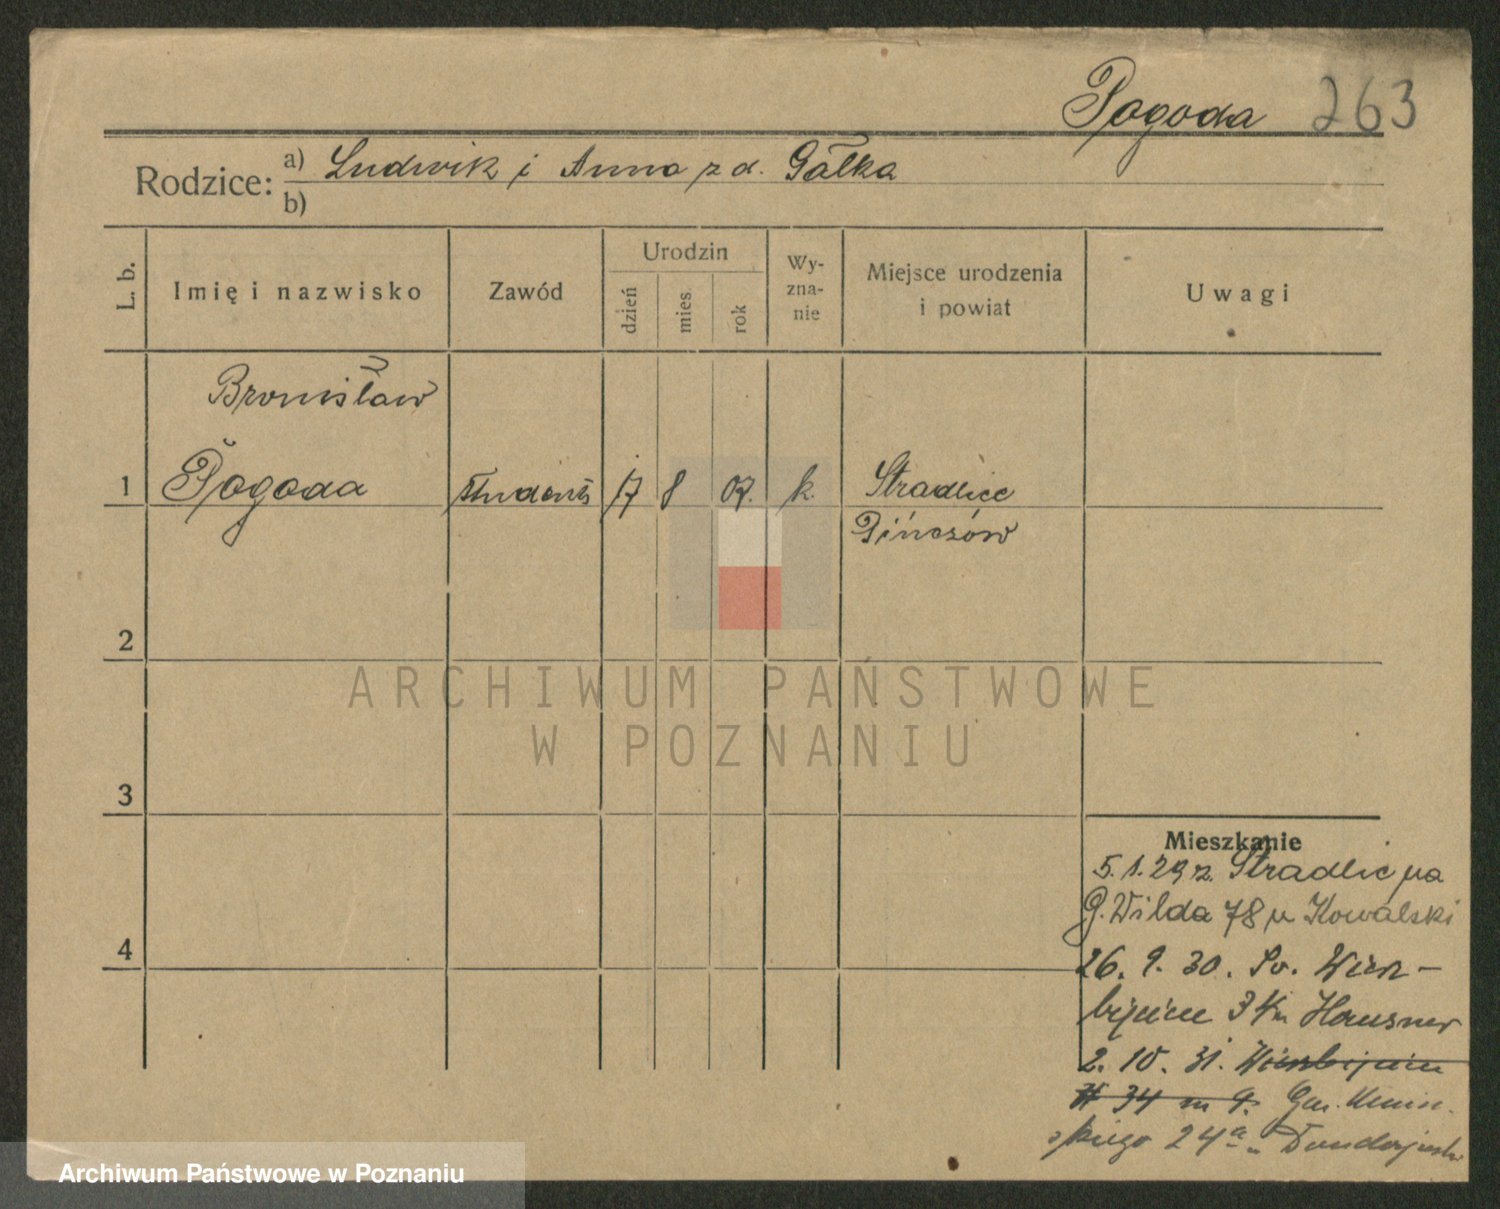 Pogoda 263
Rodzice: a) Ludwik i Anna z d. Gałka
b)
L. b. Imię i nazwisko Zawód Urodzin dzień mies rok Wy-zna-nie Miejsce urodzenia i powiat Uwagi
Bronisław
1 Pogoda student 17 8 07. k. Stradlice
Pińczów
2
ARCHIWUM PAŃSTWOWE
W POZNANIU
3
Mieszkanie
5.1.29 z Stradlic na
G. Wilda 78 u Kowalski
4
26. 9. 30. Wierz-
bięcice Hausner
2. 10. 31. Wierzbięcice
34 m 9. Gen. Umiń-
skiego 24a
Archiwum Państwowe w Poznaniu